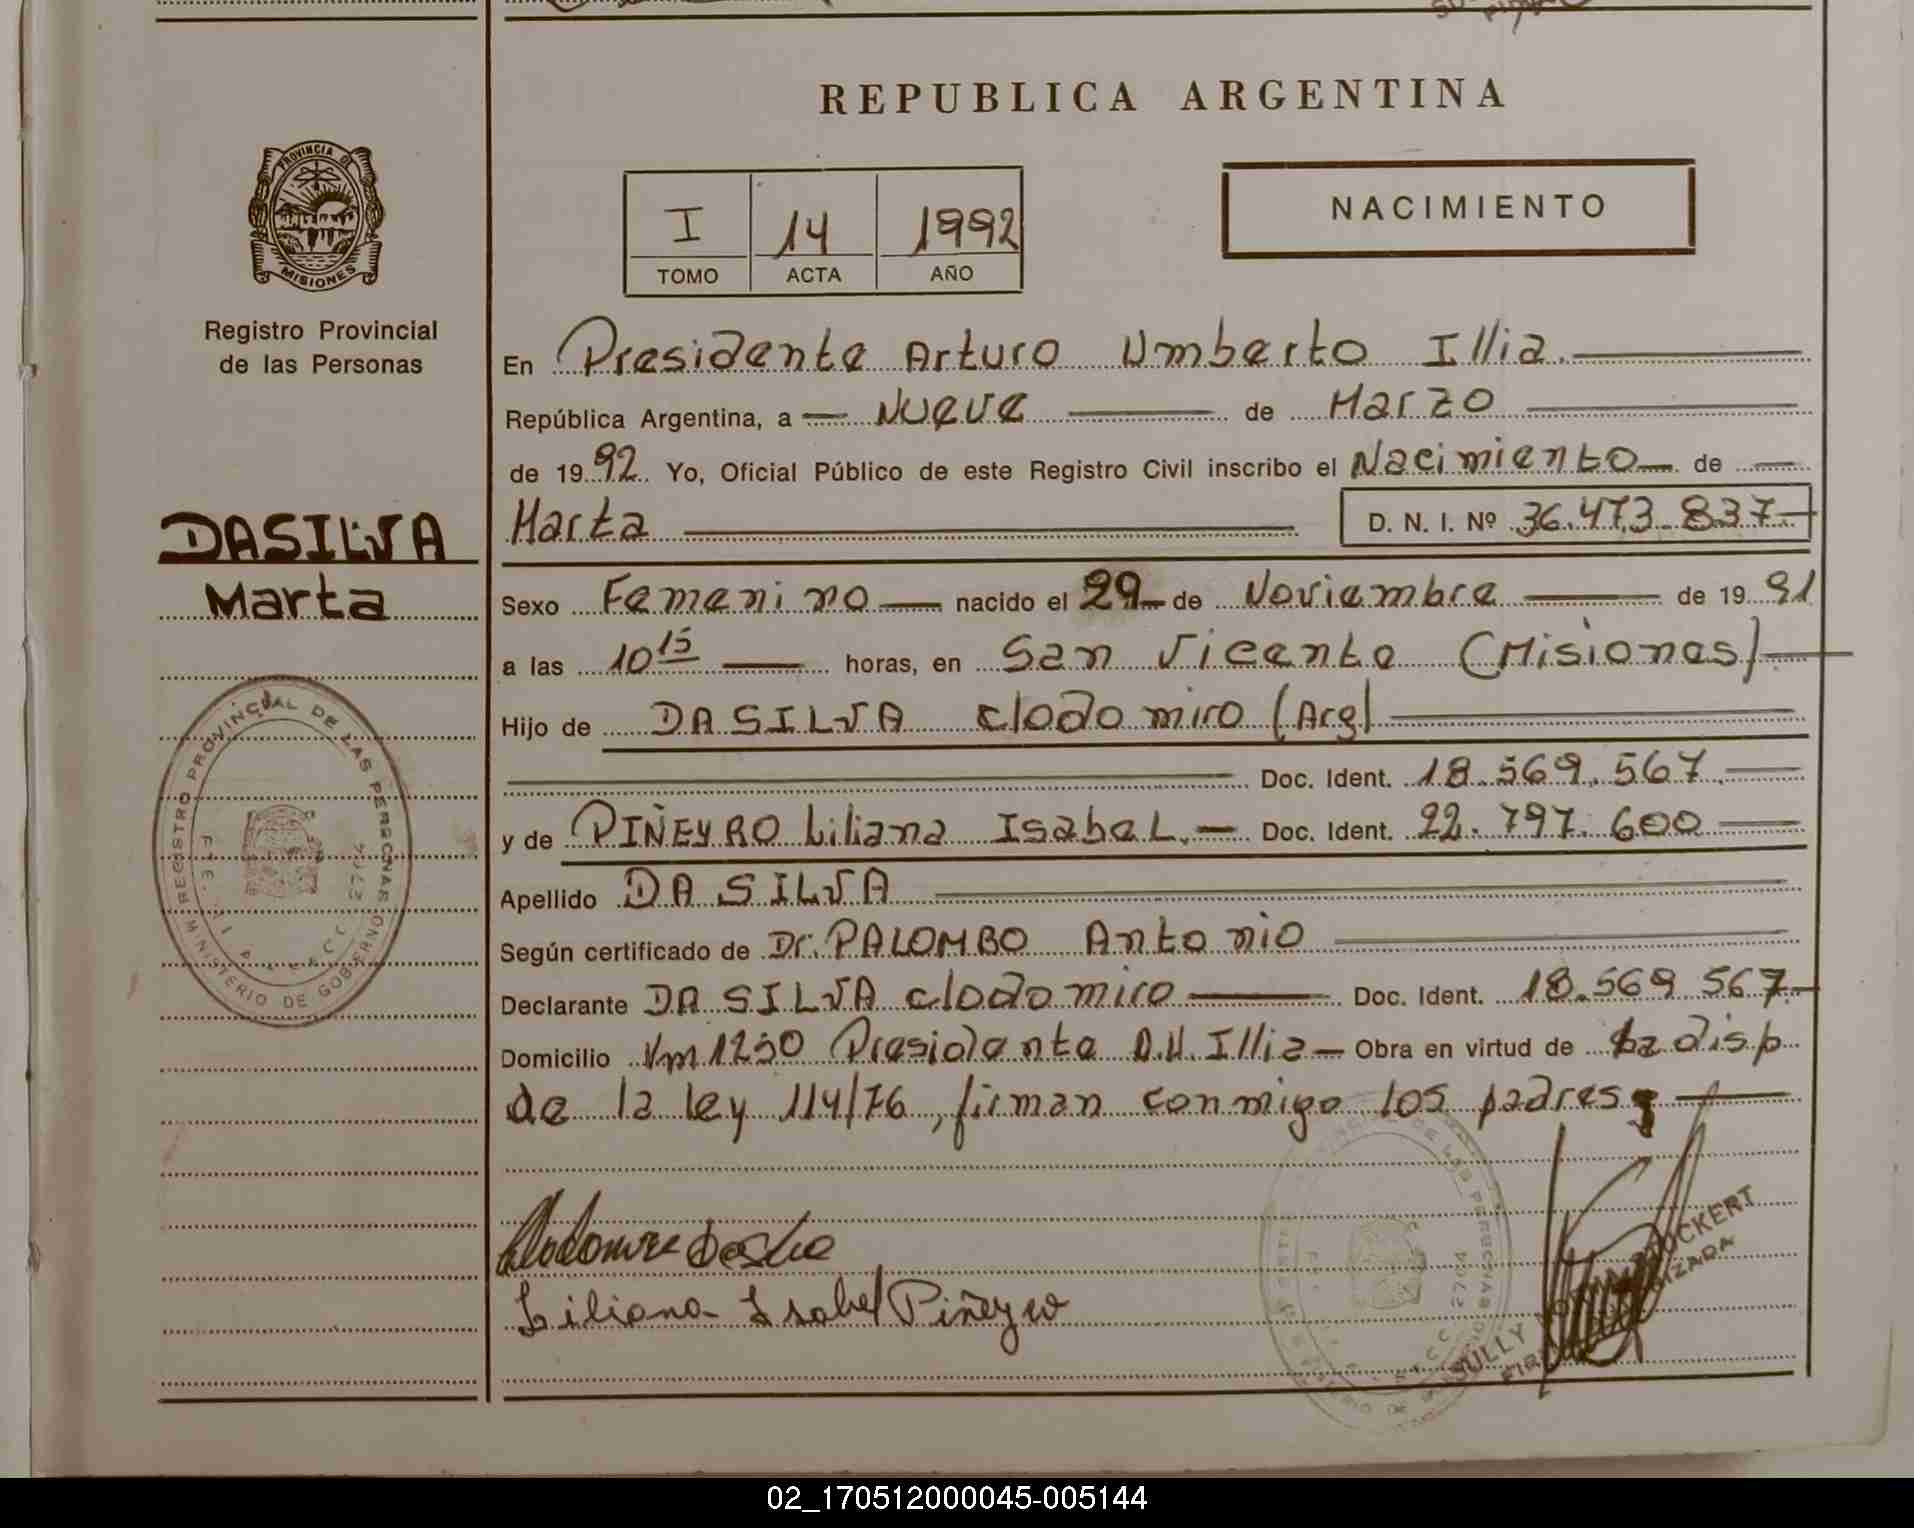 REPUBLICA ARGENTINA
PROVINCIA DE
MISIONES
Registro Provincial
de las Personas
I 14 1992
TOMO ACTA AÑO
NACIMIENTO
En Presidente Arturo Umberto Illia.
República Argentina, a Nueve de Marzo
de 1992. Yo, Oficial Público de este Registro Civil inscribo el Nacimiento de
DASILVA
Marta
Marta D. N. I. Nº 36.473.837
Sexo Femenino nacido el 29 de Noviembre de 1991
a las 10 15 horas, en San Vicente (Misiones)
Hijo de DA SILVA Clodomiro (Arg)
Doc. Ident. 18.569.567
y de PIÑEYRO Liliana Isabel. Doc. Ident. 22.797.600
Apellido DA SILVA
Según certificado de Dr. PALOMBO Antonio
Declarante DA SILVA Clodomiro Doc. Ident. 18.569 567
Domicilio Km 1250 Presidente A.U. Illia Obra en virtud de la disp
de la ley 114/76, firman conmigo los padres
REGISTRO PROVINCIAL DE LAS PERSONAS
MINISTERIO DE GOBIERNO
2704
Liliana Isabel Piñeyro
02_170512000045-005144